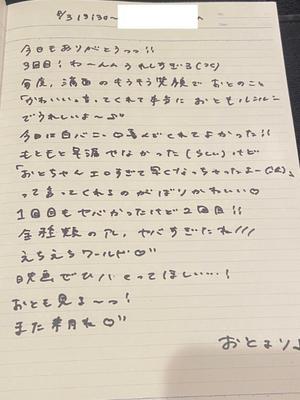 8/31 9:30〜
今日もありがとうっっ!!
3回目！わ〜んんうれしすぎる
毎度、満面のもうもう笑顔でおとのこと
「かわいい」言ってくれて本当におともルンルン
でうれしいよ〜
今日は白バニー喜んでくれてよかった!!
もともと早漏やなかった(らしい)けど
「おとちゃんエロすぎて早くなっちゃったよー」
って言ってくれるのがばりかわいい♡
1回目もヤバかったけど2回目!!
全種類の凡、ヤバすぎたね///
えちえちワールド♡"
映画でひバとってほしい…！
おとも見る〜っ！
また来月ね♡"
おとより